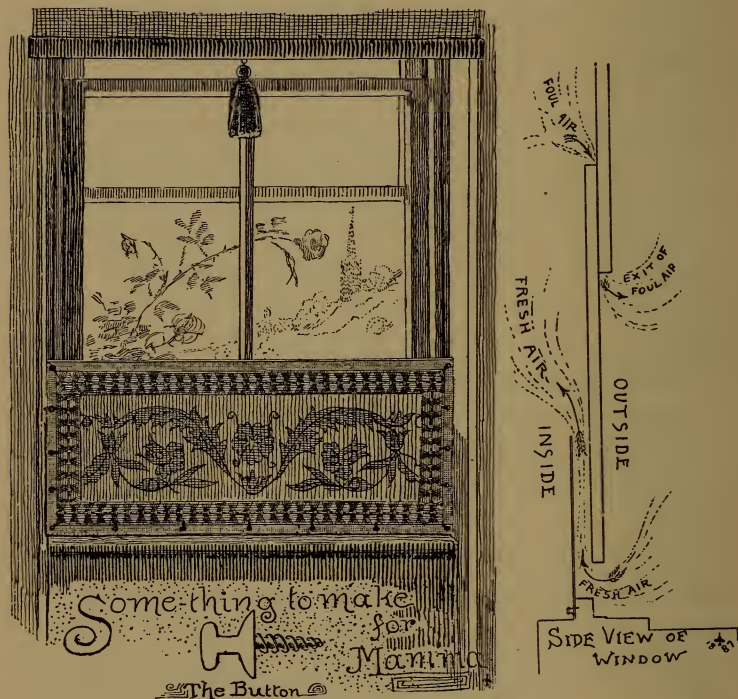 Something to make
for
Mamma
The Button
FOUL AIR
EXIT OF
FOUL AIR
FRESH AIR
INSIDE
OUTSIDE
FRESH AIR
SIDE VIEW OF
WINDOW
87